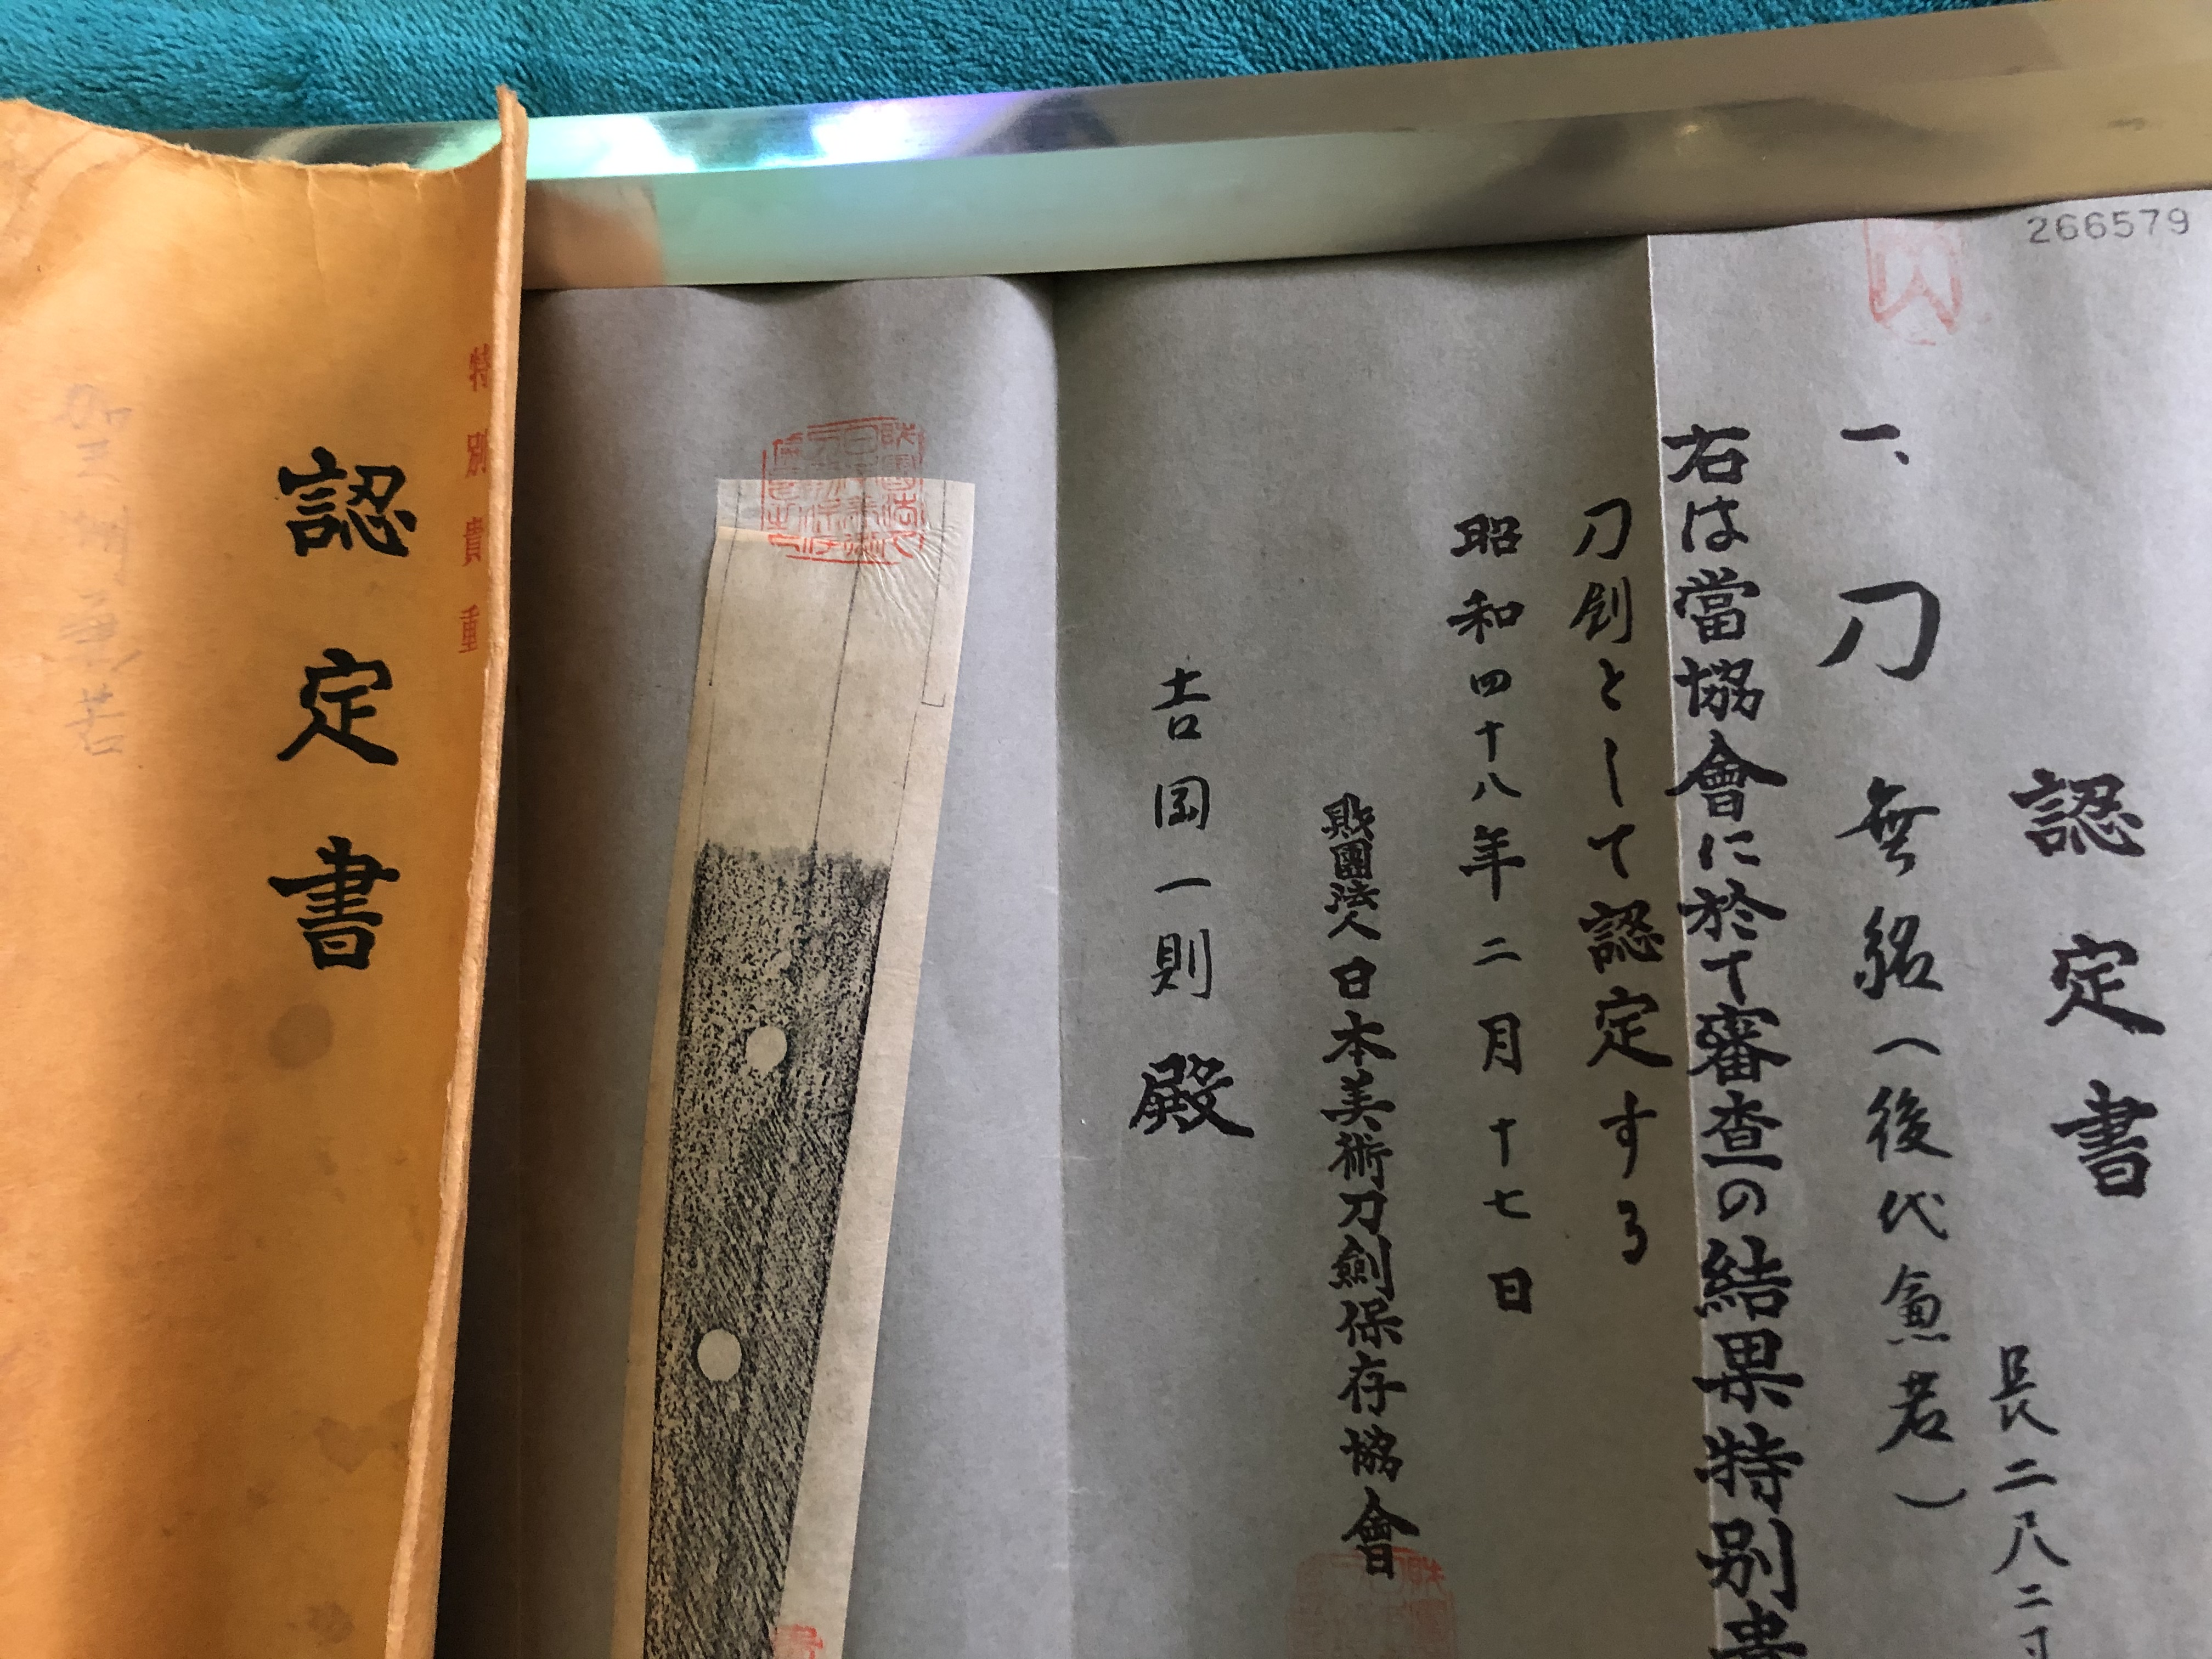 266579
認定書
長二尺二寸
一、刀 無銘(後代兼若)
右は當協會に於て審査の結果特別貴
刀剣として認定する
昭和四十八年二月十七日
財團法人日本美術刀劍保存協會
吉国一則 殿
特別貴重
認定書